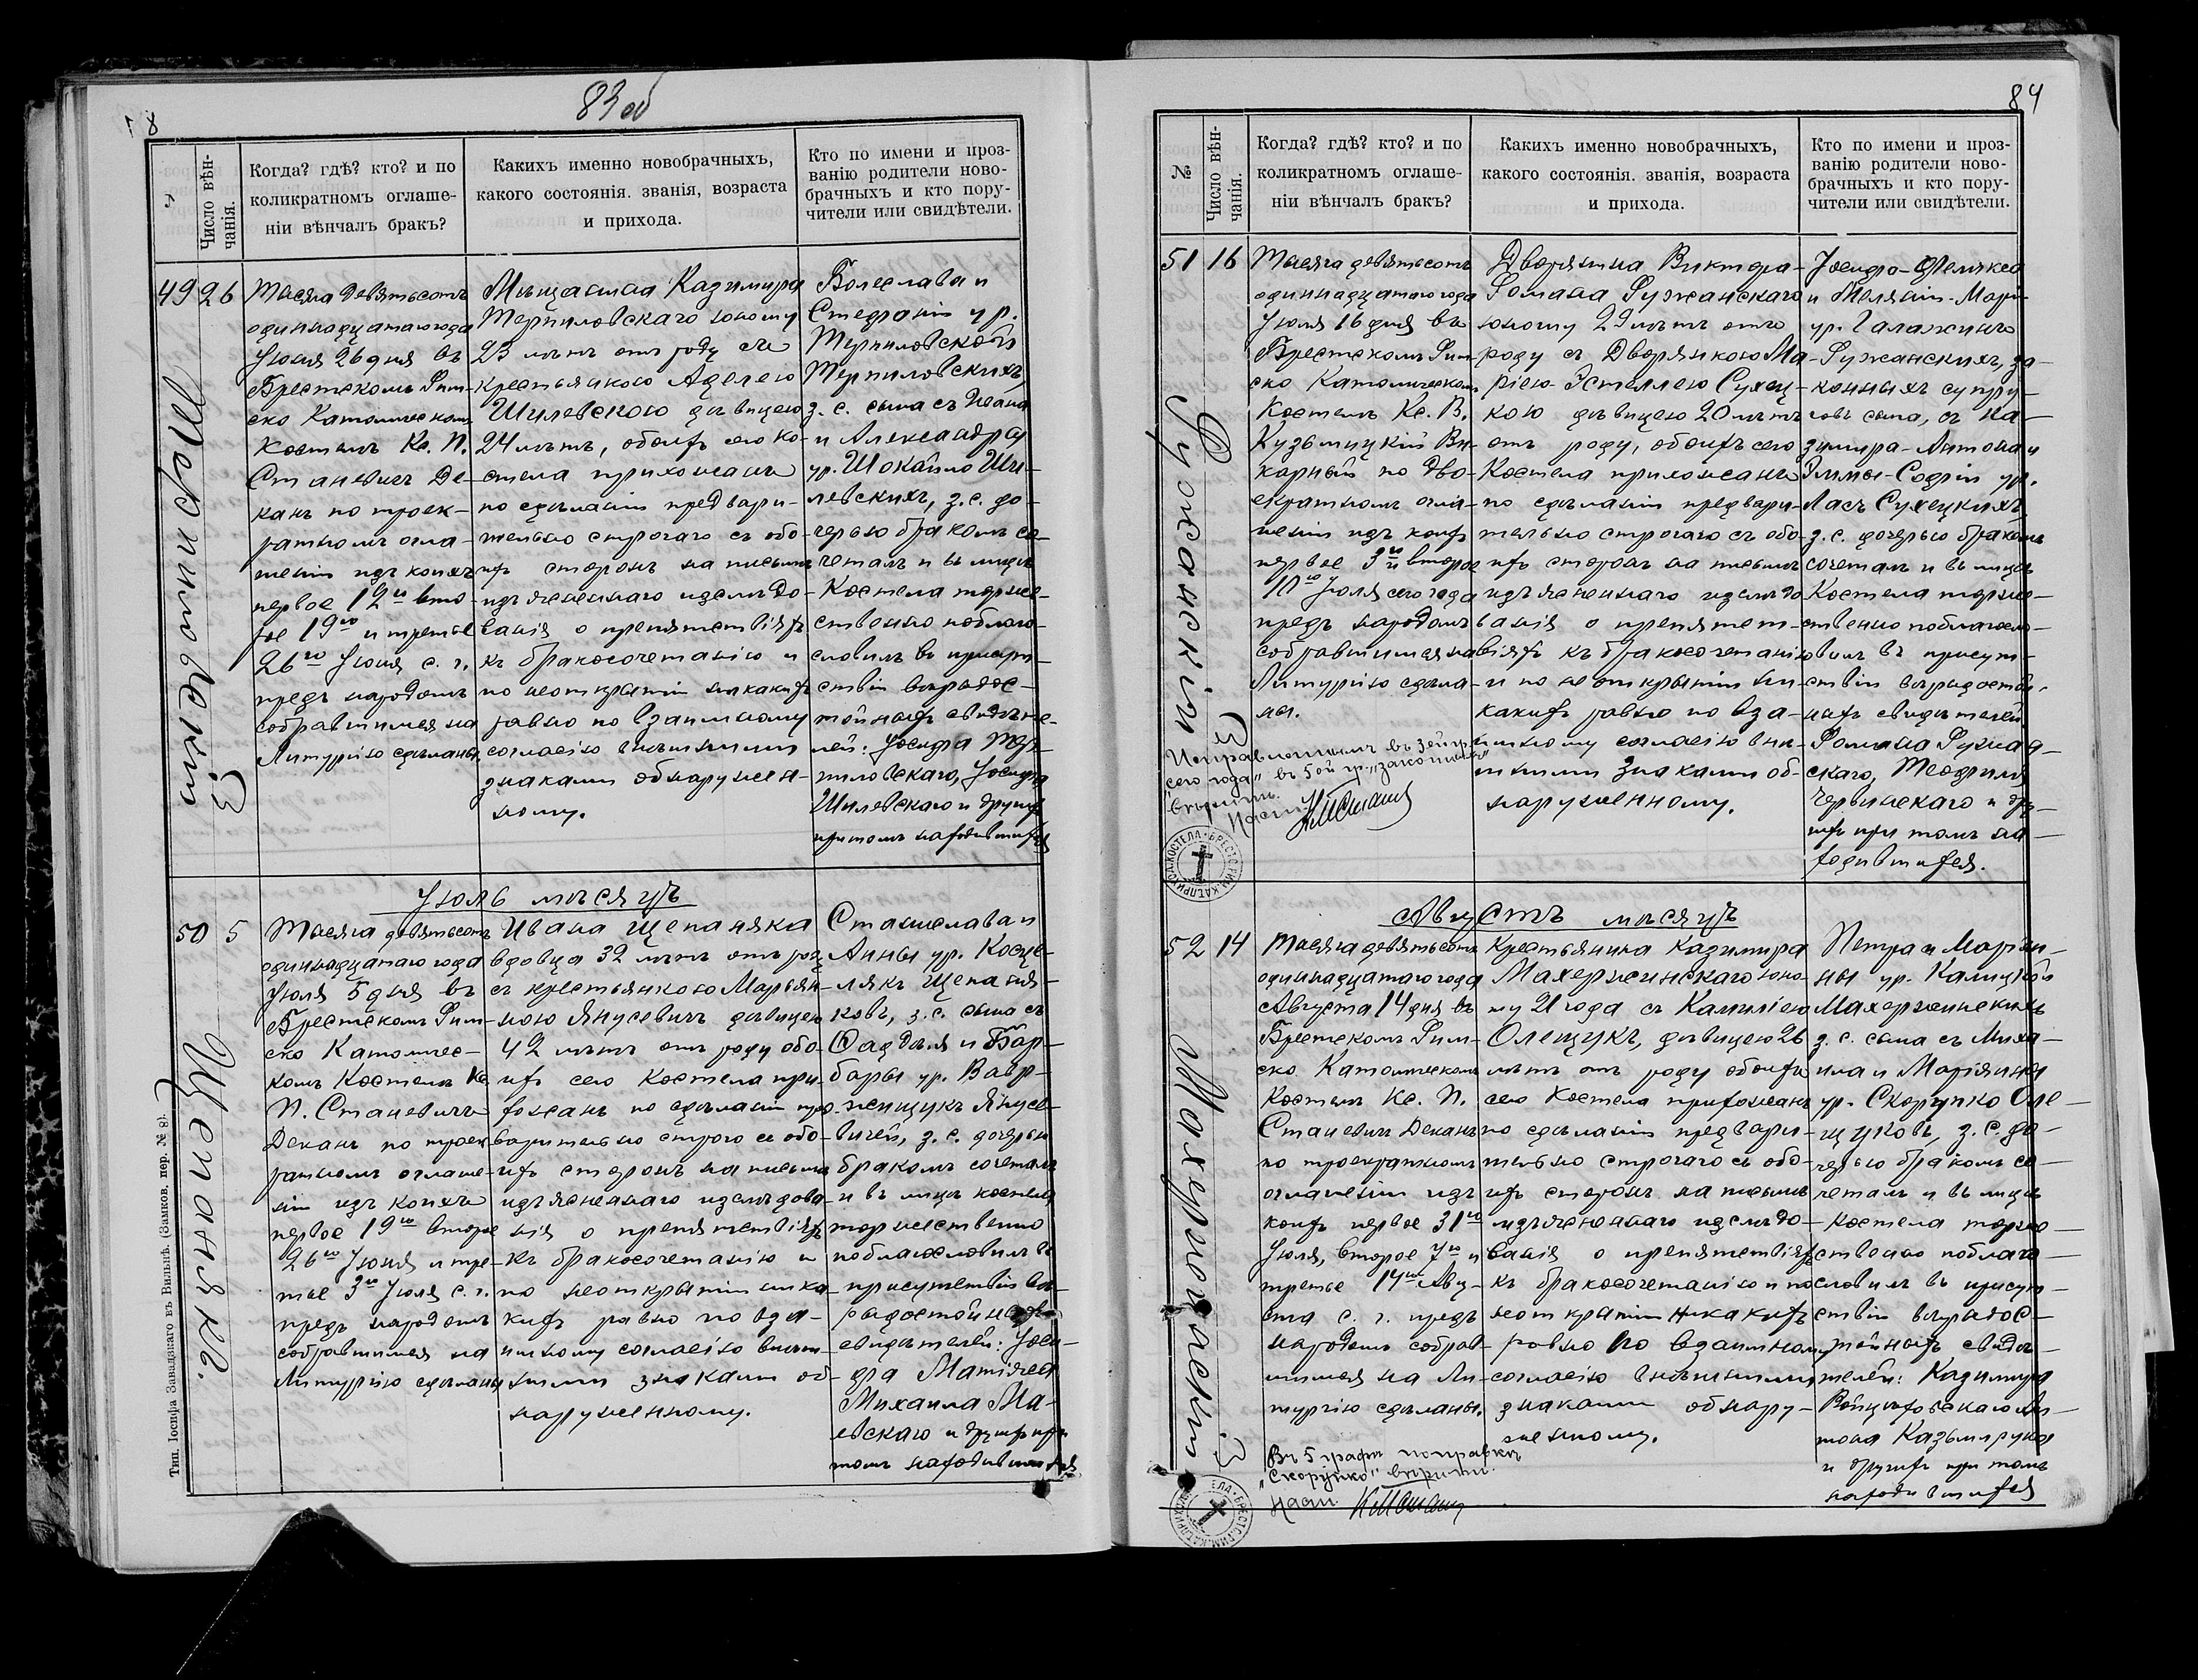 83 об
Число вѣн-
чанія.
Когда? гдѣ? кто? и по
коликратномъ оглаше-
ніи вѣнчалъ бракъ?
Какихъ именно новобрачныхъ,
какого состоянія. званія, возраста
и прихода.
Кто по имени и проз-
ванію родители ново-
брачныхъ и кто пору-
чители или свидѣтели.
49
26
Терпиловскій
З
Тысяча девятьсотъ
одиннадцатаго года
Іюня 26 дня въ
Брестскомъ Рим-
ско Католическомъ
Костелѣ Кс. П.
Станевичъ Де-
канъ по троек-
ратномъ огла-
шеніи изъ коихъ
первое 12го вто-
рое 19го и третье
26го Іюня с. г.
предъ народомъ
собравшимся на
Литургію сдѣланы
Мѣщанина Казимира
Терпиловскаго юношу
23 лѣтъ отъ роду съ
крестьянкою Аделею
Шилевскою дѣвицею
24 лѣтъ, обоихъ сего ко-
стела прихожанъ
по сдѣланіи предвари-
тельно строгаго съ обо-
ихъ сторонъ на письмѣ
изъясненнаго изслѣдо-
ванія о препятствіяхъ
къ бракосочетанію и
по неоткрытіи никакихъ
равно по взаимному
согласію внѣшними
знаками обнаружен-
ному.
Болеслава и
Стефаніи ур.
Терпиловской
Терпиловскихъ
з. с. сына съ Ивана
и Александры
ур. Шокайло Ши-
левскихъ, з. с. до-
черью бракомъ со-
четалъ и въ лицѣ
Костела торже-
ственно поблаго-
словилъ въ присут-
ствіи вѣрадос-
тойныхъ свидѣте-
лей: Іосифа Тер-
пиловскаго, Іосифа
Шилевскаго и другихъ
притомъ находившихся
Іюль мѣсяцъ
50
5
Щепанякъ.
Тысяча девятьсотъ
одиннадцатаго года
Іюля 5 дня въ
Брестскомъ Рим-
ско Католичес-
комъ Костелѣ Кс.
П. Станевичъ
Деканъ по троек-
ратномъ оглаше-
ніи изъ коихъ
первое 19го второе
26го Іюня и тре-
тье 3го Іюля с. г.
предъ народомъ
собравшимся на
Литургію сдѣланы
Ивана Щепаняка
вдовца 32 лѣтъ отъ роду
съ крестьянкою Марьян-
ною Янусевичъ дѣвицею
42 лѣтъ отъ роду обо-
ихъ сего Костела при-
хожанъ по сдѣланіи пред-
варительно строго съ обо-
ихъ сторонъ на письмѣ
изъясненнаго изслѣдова-
нія о препятствіяхъ
къ бракосочетанію и
по неоткрытіи ника-
кихъ равно по вза-
имному согласію внѣш-
ними знаками об-
наруженному.
Станислава и
Анны ур. Косце-
лякъ Щепаня-
ковъ, з. с. сына съ
Фаддѣя и Вар-
бары ур. Вавр-
женщукъ Янусе-
вичей, з. с. дочерью
бракомъ сочеталъ
и въ лицѣ костела
торжественно
поблагословилъ въ
присутствіи вѣ-
радостойныхъ
свидѣтелей: Іоси-
фа Матіяса
Михаила Ма-
евскаго и другихъ при
томъ находившихся
Тип. Іосифа Завадзкаго въ Вильнѣ. (Замков. пер. № 8).
84
№
Число вѣн-
чанія.
Когда? гдѣ? кто? и по
коликратномъ оглаше-
ніи вѣнчалъ бракъ?
Какихъ именно новобрачныхъ,
какого состоянія. званія, возраста
и прихода.
Кто по имени и проз-
ванію родители ново-
брачныхъ и кто пору-
чители или свидѣтели.
51
16
Ружанскій
З
Тысяча девятьсотъ
одиннадцатаго года
Іюля 16 дня въ
Брестскомъ Рим-
ско Католическомъ
Костелѣ Кс. В.
Кузьмицкій Ви-
карный по дво-
екратномъ огла-
шеніи изъ коихъ
первое 3го и второе
10го Іюля сего года
предъ народомъ
собравшимся на
Литургію сдѣла-
ны.
Дворянина Виктора-
Романа Ружанскаго
юношу 29 лѣтъ отъ
роду съ Дворянкою Ма-
ріею-Эстеллею Сухец-
кою дѣвицею 20 лѣтъ
отъ роду, обоихъ сего
Костела прихожанъ
по сдѣланіи предвари-
тельно строгаго съ обо-
ихъ сторонъ на письмѣ
изъясненнаго изслѣдо-
ванія о препятст-
віяхъ къ бракосочетанію
и по неоткрытіи ни-
какихъ равно по вза-
имному согласію внѣ-
шними знаками об-
наруженному.
Іосифа-Феликса
и Меляніи-Марі-
ур. Галажинъ
Ружанскихъ, за-
конныхъ супру-
говъ сына, съ Ка-
зимира-Антона и
Эммы-Софіи ур.
Ласъ Сухецкихъ
з. с. дочерью бракомъ
сочеталъ и въ лицѣ
Костела торже-
ственно поблагосло-
вилъ въ присут-
ствіи вѣрадостой-
ныхъ свидѣтелей
Романа
скаго, Теофила
Червинскаго и дру-
гихъ при томъ на-
ходившихся.
Исправленнымъ въ 3ей гр.
"сего года" въ 5ой гр. "законныхъ"
вѣрить.
БРЕСТС.РИМ.КАТ.ПРИХОД.КОСТЕЛА
Августъ мѣсяцъ
52
14
Махержинскій
З
Тысяча девятьсотъ
одиннадцатаго года
Августа 14 дня въ
Брестскомъ Рим-
ско Католическомъ
Костелѣ Кс. П.
Станевичъ Деканъ
по троекратномъ
оглашеніи изъ
коихъ первое 31го
Іюля, второе 7го и
третье 14го Авгу-
ста с. г. предъ
народомъ собрав-
шимся на Ли-
тургію сдѣланы.
Крестьянина Казимира
Махержинскаго юно-
шу 21 года съ Камиліею
Олещукъ, дѣвицею 26
лѣтъ отъ роду обоихъ
сего Костела прихожанъ
по сдѣланіи предвари-
тельно строгаго съ обо-
ихъ сторонъ на письмѣ
изъясненнаго изслѣдо-
ванія о препятствіяхъ
къ бракосочетанію и по
неоткрытіи никакихъ
равно по взаимному
согласію внѣшними
знаками обнару-
женному.
Петра и Маріан-
ны ур. Калицкой
Махержинскихъ
з. с. сына съ Миха-
ила и Маріянны
ур. Скорупко Оле-
щуковъ, з. с. до-
черью бракомъ со-
четалъ и въ лицѣ
Костела торже-
ственно поблаго-
словилъ въ присут-
ствіи вѣрадос-
тойныхъ свидѣ-
телей: Казимира
Войцѣховскаго Ан-
тона Казьмирука
и другихъ при томъ
находившихся
Въ 5 графѣ поправкѣ
"Скорупко" вѣрить.
БРЕСТС.РИМ.КАТ.ПРИХОД.КОСТЕЛА